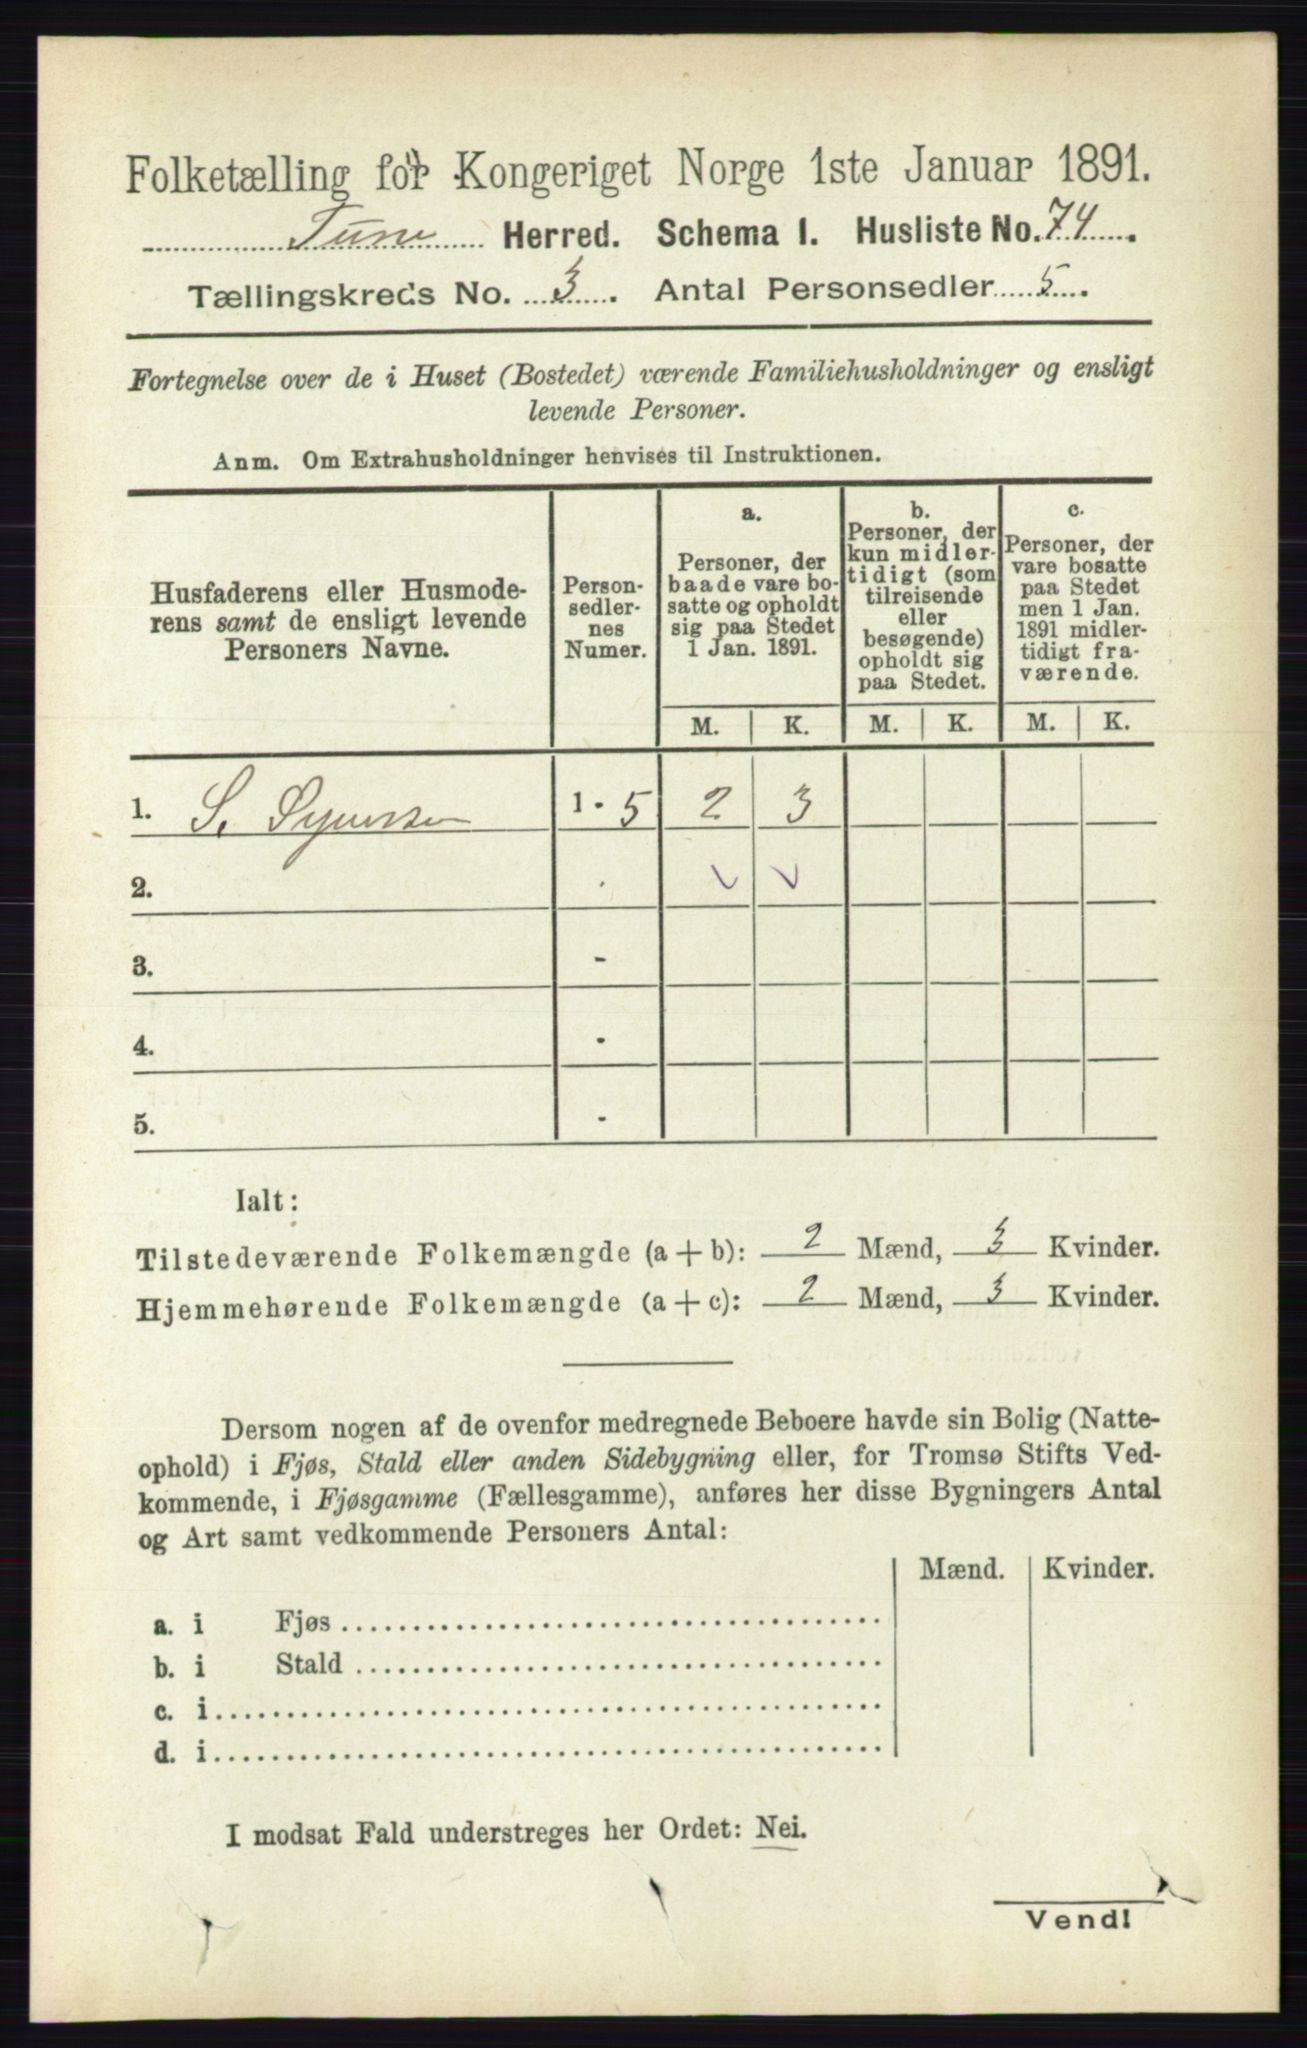 Folketælling for Kongeriget Norge 1ste Januar 1891.
Tune Herred. Schema I. Husliste No. 74.
Tællingskreds No. 3. Antal Personsedler 5.
Fortegnelse over de i Huset (Bostedet) værende Familiehusholdninger og ensligt
levende Personer.
Anm. Om Extrahusholdninger henvises til Instruktionen.
Husfaderens eller Husmode-
rens samt de ensligt levende
Personers Navne.
Person-
sedler-
nes
Numer.
a.
Personer, der
baade vare bo-
satte og opholdt
sig paa Stedet
1 Jan. 1891.
b.
Personer, der
kun midler-
tidigt (som
tilreisende
eller
besøgende)
opholdt sig
paa Stedet.
c.
Personer, der
vare bosatte
paa Stedet
men 1 Jan.
1891 midler-
tidigt fra-
værende.
M. K. M. K. M. K.
1. S. 1 - 5 2 3
2.
3. -
4. -
5. -
Ialt:
Tilstedeværende Folkemængde (a + b): 2 Mænd, 3 Kvinder.
Hjemmehørende Folkemængde (a + c): 2 Mænd, 3 Kvinder.
Dersom nogen af de ovenfor medregnede Beboere havde sin Bolig (Natte-
ophold) i Fjøs, Stald eller anden Sidebygning eller, for Tromsø Stifts Ved-
kommende, i Fjøsgamme (Fællesgamme), anføres her disse Bygningers Antal
og Art samt vedkommende Personers Antal:
Mænd. Kvinder.
a. i Fjøs
b. i Stald
c. i
d. i
I modsat Fald understreges her Ordet: Nei.
Vend!